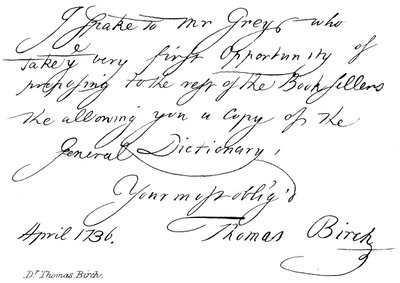 I spake to Mr Grey, who
takes ye very first Opportunity of
proposing to the rest of the Booksellers
the allowing you a Copy of the
General Dictionary,
Your most oblig'd
April 1736. Thomas Birch
Dr. Thomas Birch.